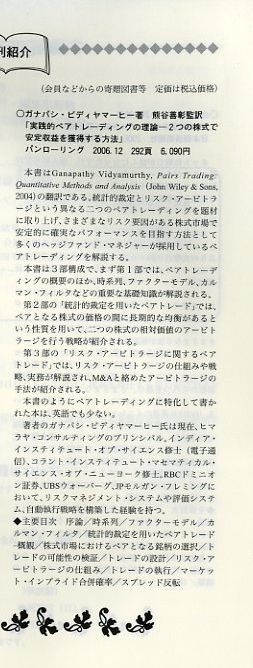 刊紹介
(会員などからの寄贈図書等 定価は税込価格)
○ガナパシ・ビディヤマーヒー著 熊谷善彰監訳
「実践的ペアトレーディングの理論―2つの株式で
安定収益を獲得する方法」
パンローリング 2006.12 292頁 6,090円
本書はGanapathy Vidyamurthy, Pairs Trading:
Quantitative Methods and Analysis (John Wiley & Sons,
2004)の翻訳である。統計的裁定とリスク・アービトラ
ージという異なる二つのペアトレーディングを題材
に取り上げ、さまざまなリスク要因がある株式市場で
安定的に確実なパフォーマンスを目指す方法として
多くのヘッジファンド・マネジャーが採用しているペ
アトレーディングを解説する。
本書は3部構成で、まず第1部では、ペアトレーデ
ィングの概要のほか、時系列、ファクターモデル、カル
マン・フィルタなどの重要な基礎知識が解説される。
第2部の「統計的裁定を用いたペアトレード」では、
ペアとなる株式の価格の間に長期的な均衡があると
いう性質を用いて、二つの株式の相対価値のアービト
ラージを行う戦略が紹介される。
第3部の「リスク・アービトラージに関するペアト
レード」では、リスク・アービトラージの仕組みや戦
略、実務が解説され、M&Aと絡めたアービトラージの
手法が紹介される。
本書のようにペアトレーディングに特化して書か
れた本は、英語でも少ない。
著者のガナパシ・ビディヤマーヒー氏は現在、ヒマ
ラヤ・コンサルティングのプリンシパル。インディア・
インスティテュート・オブ・サイエンス修士(電子通
信)、コラント・インスティテュート・マセマティカル・
サイエンス・オブ・ニューヨーク修士。RBCドミニオ
ン証券、UBSウォーバーグ、JPモルガン・フレミングに
おいて、リスクマネジメント・システムや評価システ
ム、自動執行戦略を構築した経験を持つ。
◆主要目次 序論／時系列／ファクターモデル／カ
ルマン・フィルタ／統計的裁定を用いたペアトレード
―概観／株式市場におけるペアとなる銘柄の選択／ト
レードの可能性の検証／トレードの設計／リスク・ア
ービトラージの仕組み／トレードの執行／マーケッ
ト・インプライド合併確率／スプレッド反転